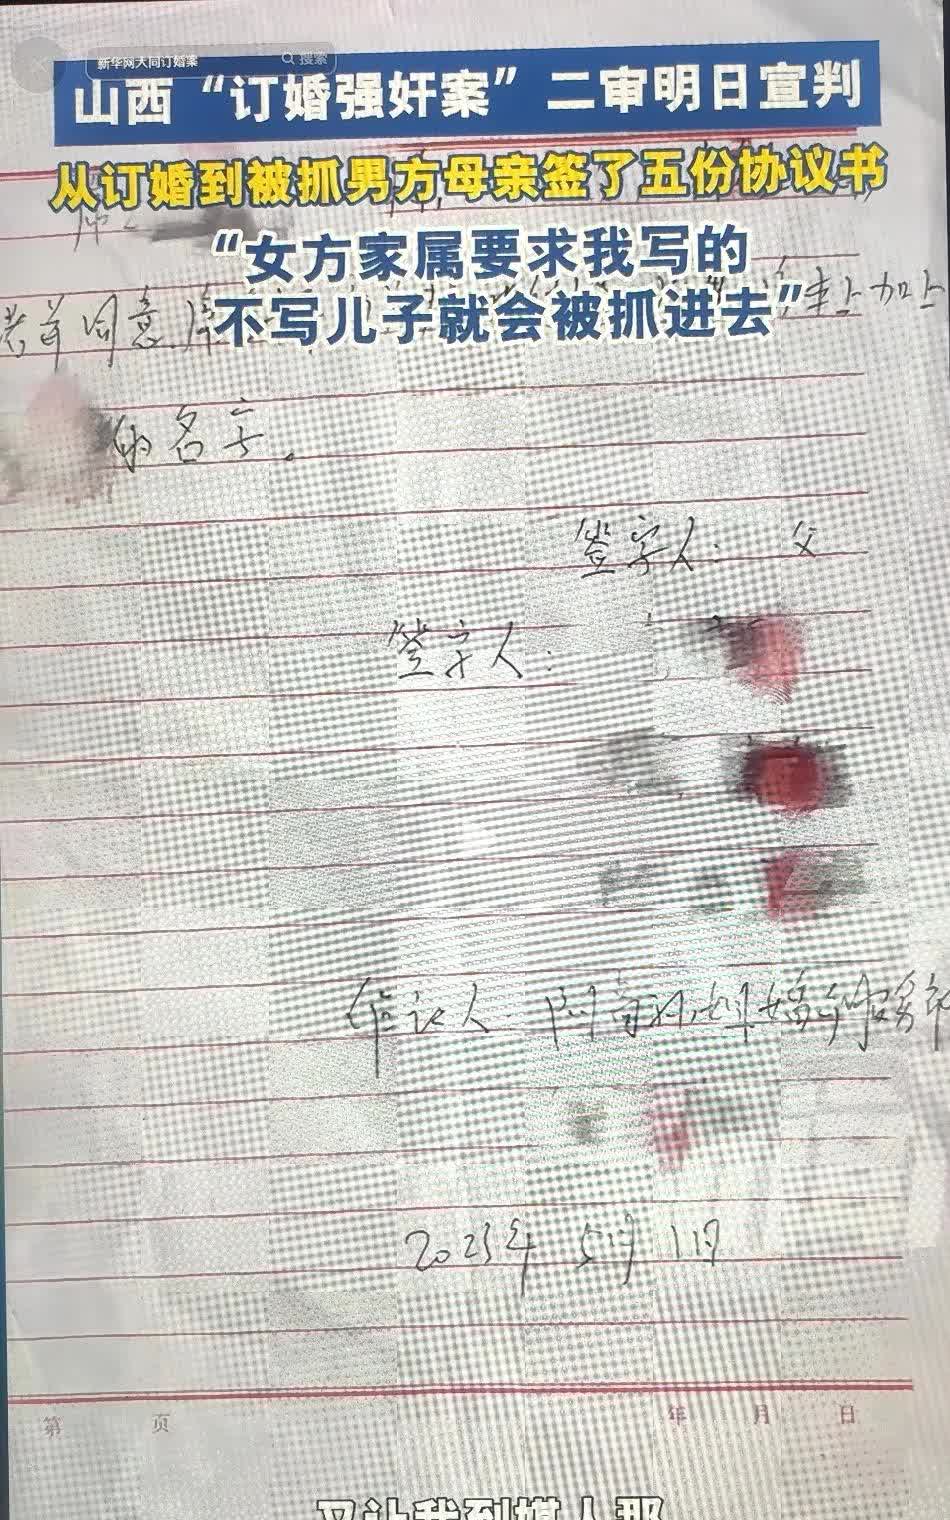 新华网大同订婚案
搜索
山西“订婚强奸案”二审明日宣判
从订婚到被抓男方母亲签了五份协议书
“女方家属要求我写的
不写儿子就会被抓进去”
同意 加上
的名字。
签字人： 父
签字人：
证人
2023年 5月 1日
第 页 年 月 日
又让我到媒人那